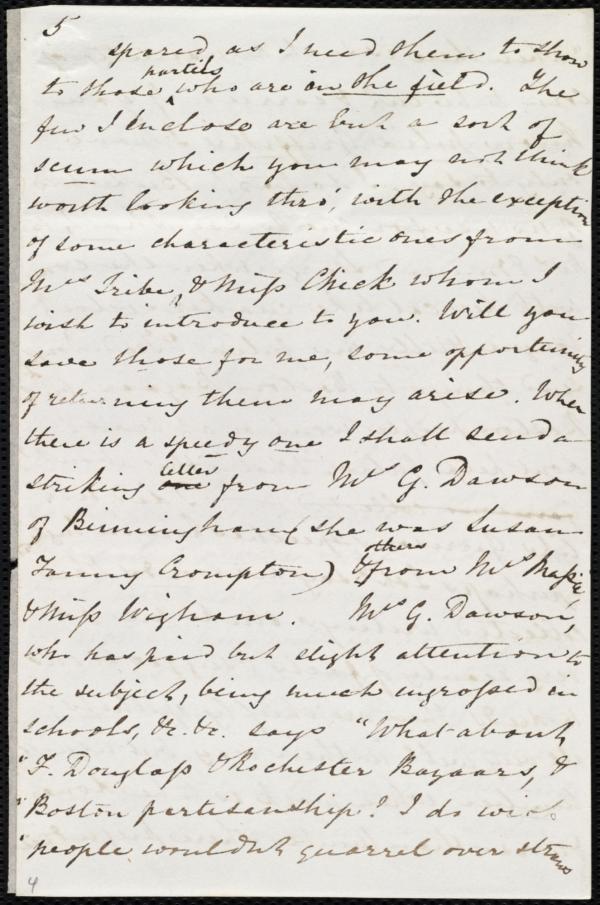 5
spared, as I need them to show
to those parties who are in the field. The
few I enclose are but a sort of
scum which you may not think
worth looking thro', with the exception
of some characteristic ones from
Mrs Tribe, & Miss Chick whom I
wish to introduce to you. Will you
save those for me, some opportunity
of returning them may arise. When
there is a speedy one I shall send a
striking one letter from Mrs G. Dawson
of Birmingham (she was Susan
Fanny Crompton) & others from Mrs Massie,
& Miss Wigham. Mrs G. Dawson,
who has paid but slight attention to
the subject, being much engrossed in
schools, &c. &c. says "What about
"F. Douglass & Rochester Bazaars, &
"Boston partisanship? I do wish
"people wouldn't quarrel over straws
4